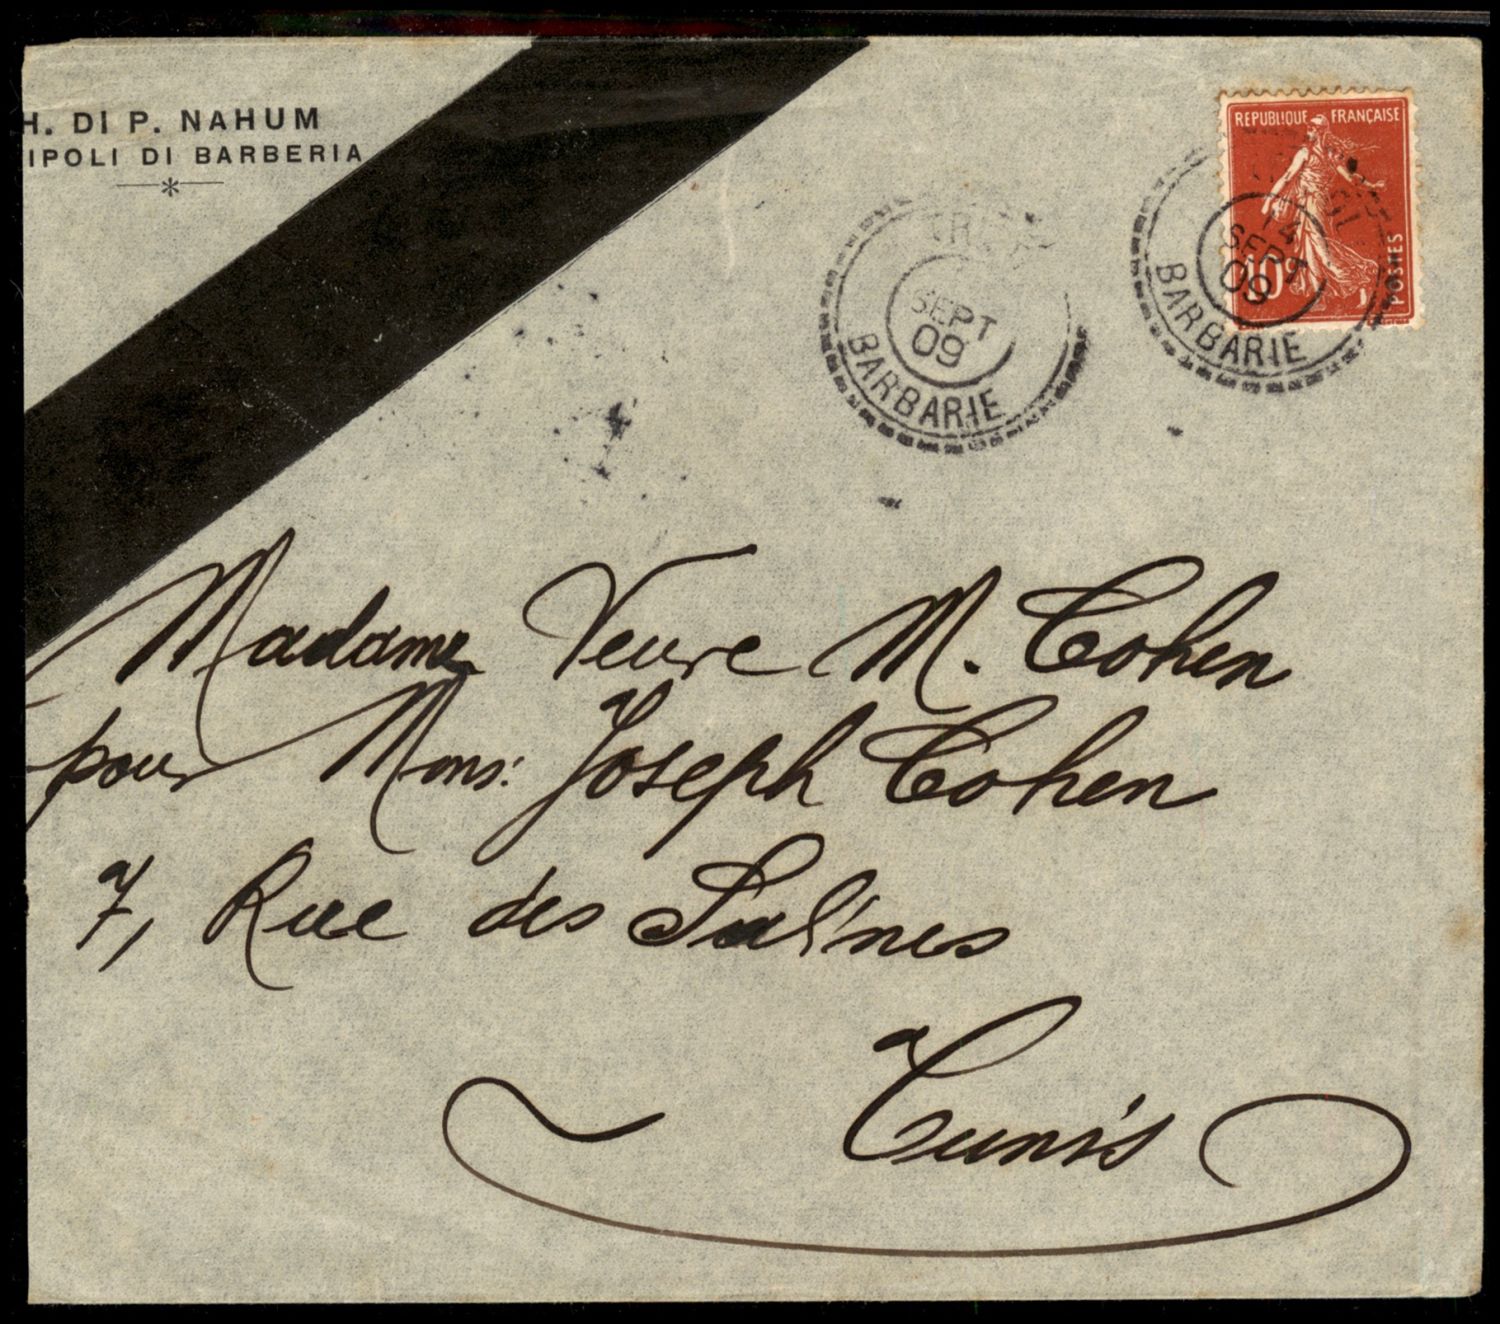 H. DI P. NAHUM
IPOLI DI BARBERIA
REPUBLIQUE FRANÇAISE
10c
POSTES
14
SEPT
09
BARBARIE
SEPT
09
BARBARIE
Madame Veuve M. Cohen
pour Mons: Joseph Cohen
7, Rue des Salines
Tunis